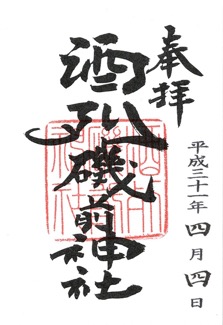 奉拝
酒列磯前神社
平成三十一年四月四日